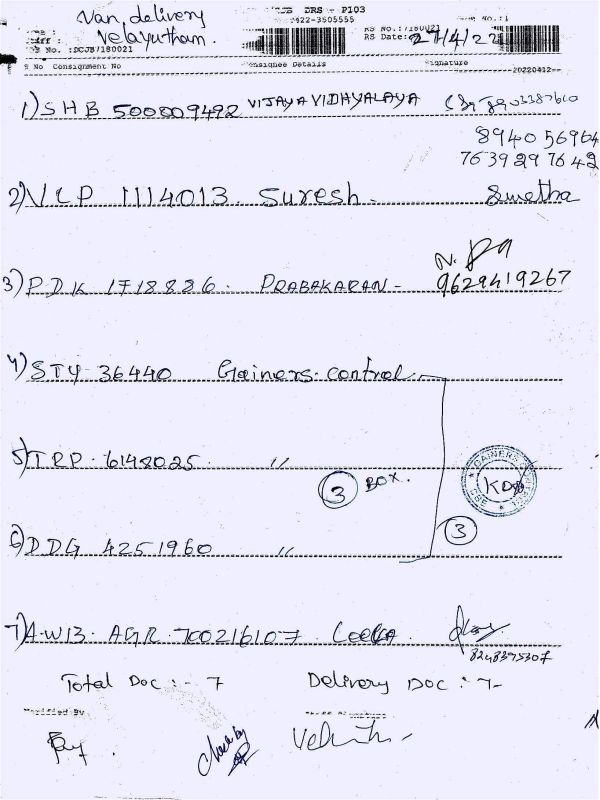 DRS - P103
Van delivery
0422-3505555
No.:1
Velayutham.
RS No.:7180021
RS Date: 27/4/22
DRS No. :DCJB7180021
S No Consignment No Consignee Details Signature
20220412--
1) SHB 500009492 VIJAYA VIDHYALAYA
8940 56964
7639297642
2) VLP 1114013 Suresh. Swetha
3) PDK 1718886. PRABAKARAN -
9629419267
4) STY 36440 Gainers. control
5) TRP. 6148025. "
3 BOX.
GAINERS CBE
3
6) DDG 4251960 "
7) A.WB. AGR. 700216107.
8248395307
Total Doc : - 7 Delivery Doc : 7-
Verified By